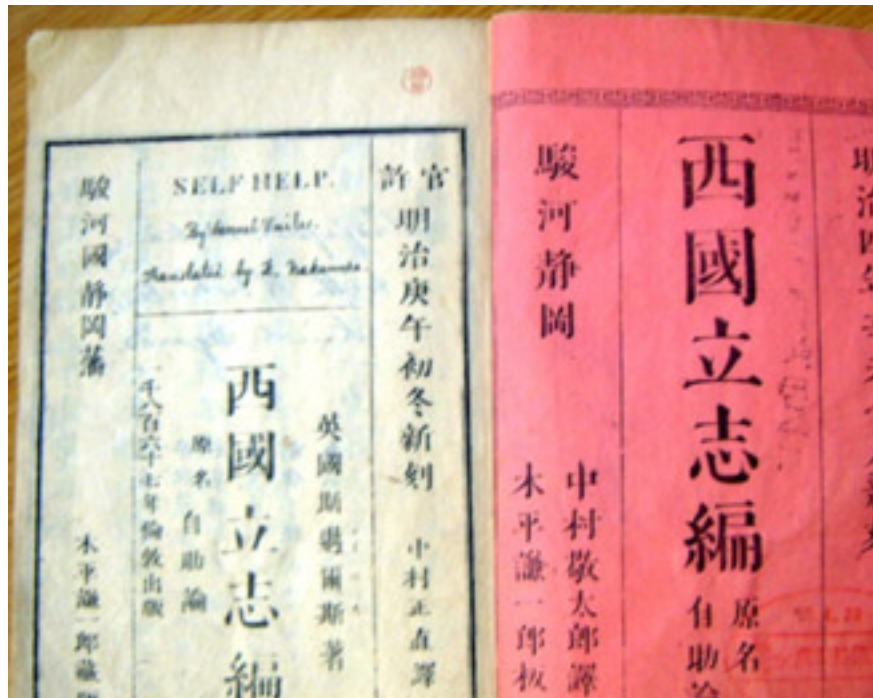 官許
明治庚午初冬新刻
中村正直譯
SELF HELP.
By Samuel Smiles.
Translated by K. Nakamura
英國斯邁爾斯著
西國立志編
原名自助論
一千八百六十七年倫敦出版
駿河國靜岡藩
木平謙一郎藏版
明治四年
西國立志編
原名
自助論
駿河靜岡
中村敬太郎譯
木平謙一郎板